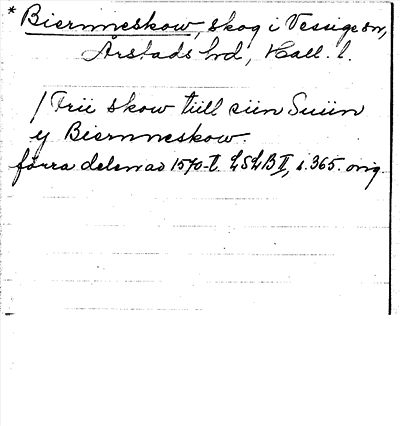 * Biernneskow, skog i Vessige sn,
Årstads hd, Hall. l.
/ Frii skow till siin Suiin
y Biernneskow.
förra delen av 1570-t. LSLB II, s. 365. orig.